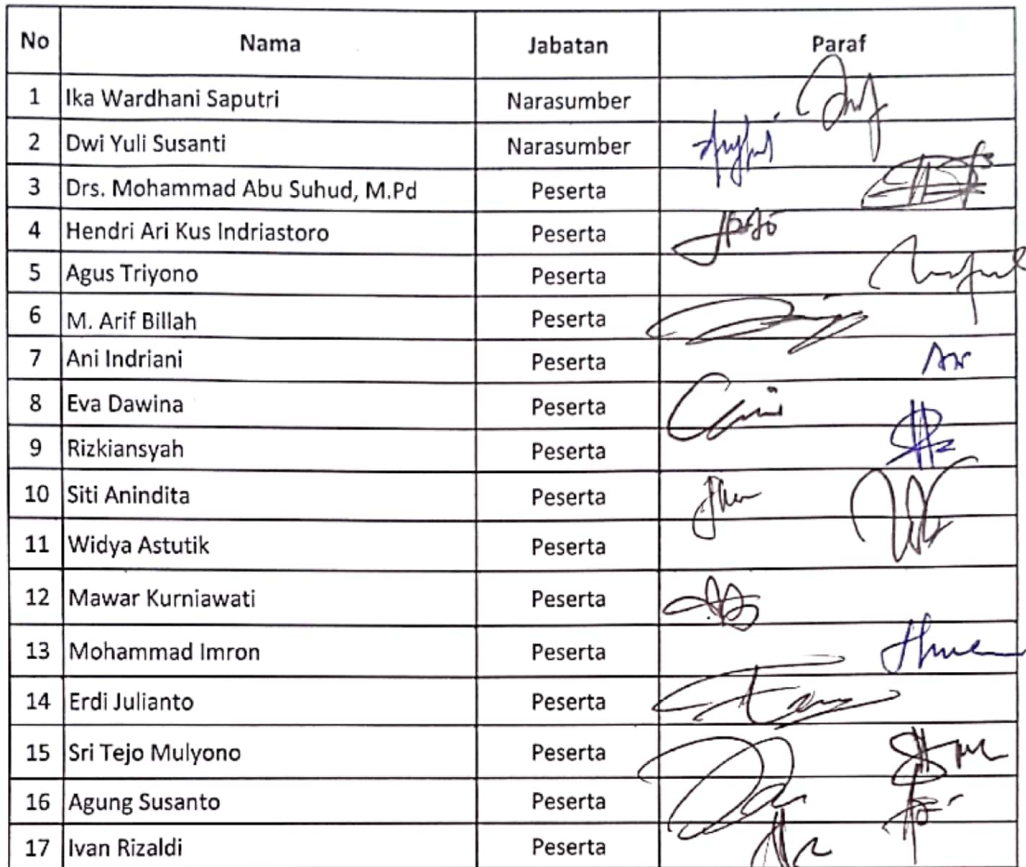 No Nama Jabatan Paraf
1 Ika Wardhani Saputri Narasumber
2 Dwi Yuli Susanti Narasumber
3 Drs. Mohammad Abu Suhud, M.Pd Peserta
4 Hendri Ari Kus Indriastoro Peserta
5 Agus Triyono Peserta
6 M. Arif Billah Peserta
7 Ani Indriani Peserta
8 Eva Dawina Peserta
9 Rizkiansyah Peserta
10 Siti Anindita Peserta
11 Widya Astutik Peserta
12 Mawar Kurniawati Peserta
13 Mohammad Imron Peserta
14 Erdi Julianto Peserta
15 Sri Tejo Mulyono Peserta
16 Agung Susanto Peserta
17 Ivan Rizaldi Peserta